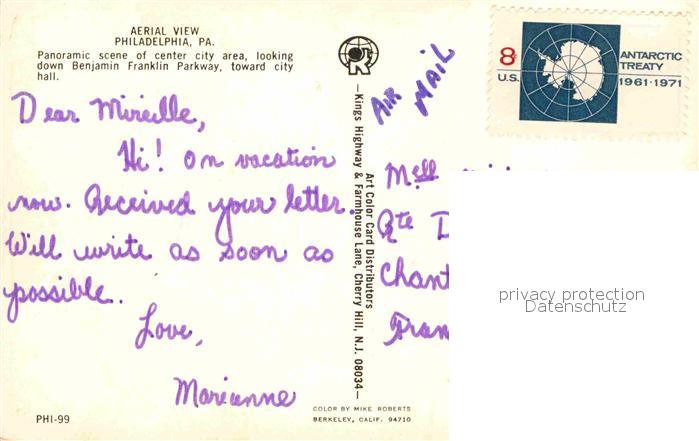 AERIAL VIEW
PHILADELPHIA, PA.
Panoramic scene of center city area, looking
down Benjamin Franklin Parkway, toward city
hall.
Dear Mireille,
Hi! On vacation
now. Received your letter.
Will write as soon as
possible.
Love,
Marianne
PHI-99
Art Color Card Distributors
—Kings Highway & Farmhouse Lane, Cherry Hill, N.J. 08034—
COLOR BY MIKE ROBERTS
BERKELEY, CALIF. 94710
AIR MAIL
8¢
U.S.
ANTARCTIC
TREATY
1961·1971
Mell
Rte
Chant
Fran
privacy protection
Datenschutz